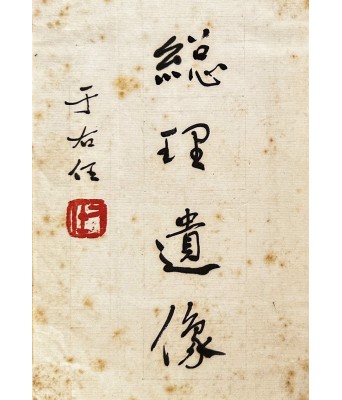 總理遺像
于右任